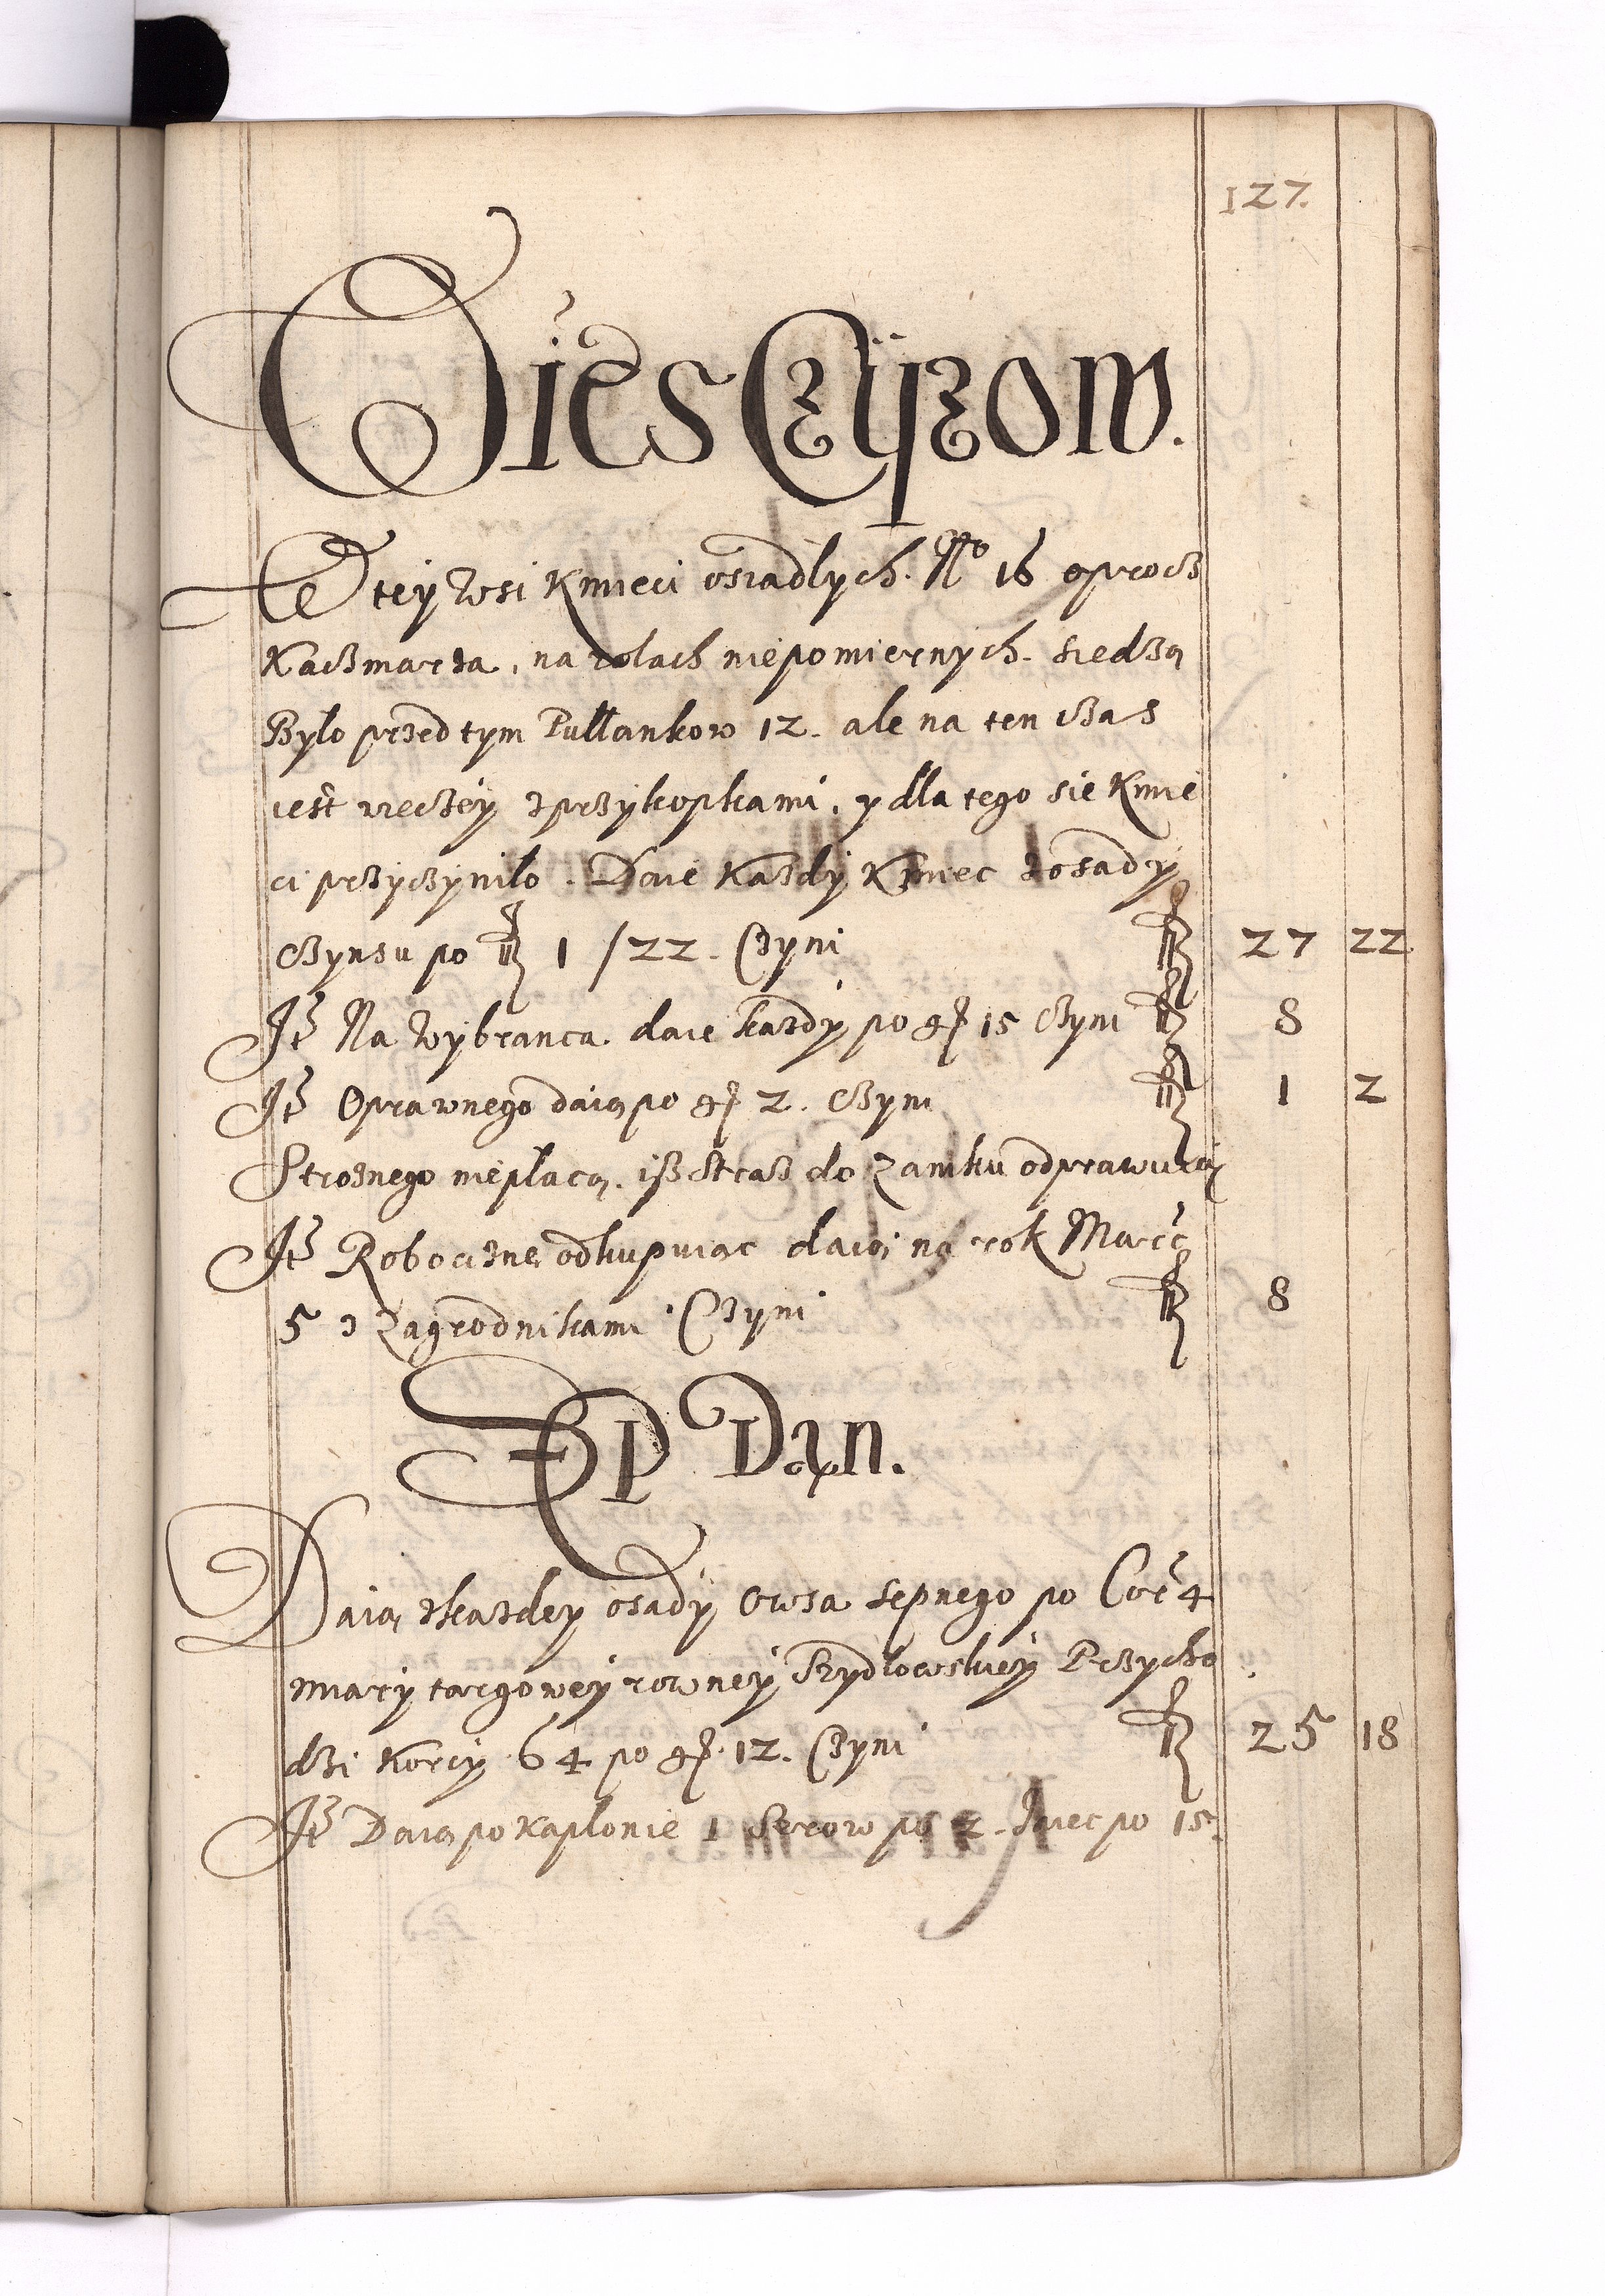 127.
Wieś Czyżow.
W tey Wsi Kmieci osiadlych. No 16 oprocz
Kaczmarza, na rolach niepomiernych. siedzą
Bylo przed tym Pullankow 12. ale na ten czas
iest wieczey z przykopkami, y dla tego sie Kmie
ci przyczynilo. Daie Kazdy Kmiec z osady
Czynszu po fl 1 /22. Czyni fl 27 22
It Na Wybranca. daie kazdy po gr 15 Czyni fl 8
It Oprawnego daią po gr 2. Czyni fl 1 2
Stroznego nie placą. isz Straz do Zamku odprawuią
It Robociznę odkupuiąc daią na rok Marc
5 z Zagrodnikami Czyni fl 8
Sep Dan.
Daią z kazdey osady Owsa sepnego po Cor 4
miary targowey rowney Szydlowskiey Przycho
dzi Korcy 64 po gr 12. Czyni fl 25 18
It Daią po kaplonie 1 Serow po 2. Iaiec po 15.